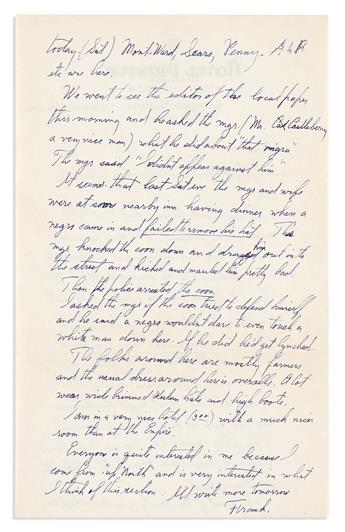 today (Sat) Mont-Ward, Sears, Penny. A & P
etc are here.
We went to see the editor of the local paper
this morning and he asked the mgr. (Mr. Castleberry
a very nice man) what he did about "that nigra"
The mgr said "I didnt appear against him"
It seems that last Sat eve the mgr and wife
were at some nearby inn having dinner when a
negro came in and failed to remove his hat. The
mgr knocked the coon down and dragged him out into
the street and kicked and mauled him pretty bad
Then the police arrested the coon
I asked the mgr if the coon tried to defend himself
and he said a negro wouldnt dare to even touch a
white man down here. If he did he'd get lynched
The folks around here are mostly farmers
and the usual dress around here is overalls. A lot
wear wide brimmed Western hats and high boots.
I am in a very nice hotel (3.00) with a much nicer
room than at the Empire.
Everyone is quite interested in me because I
come from "up North" and is very interested in what
I think of this section. Ill write more tomorrow
Frank.